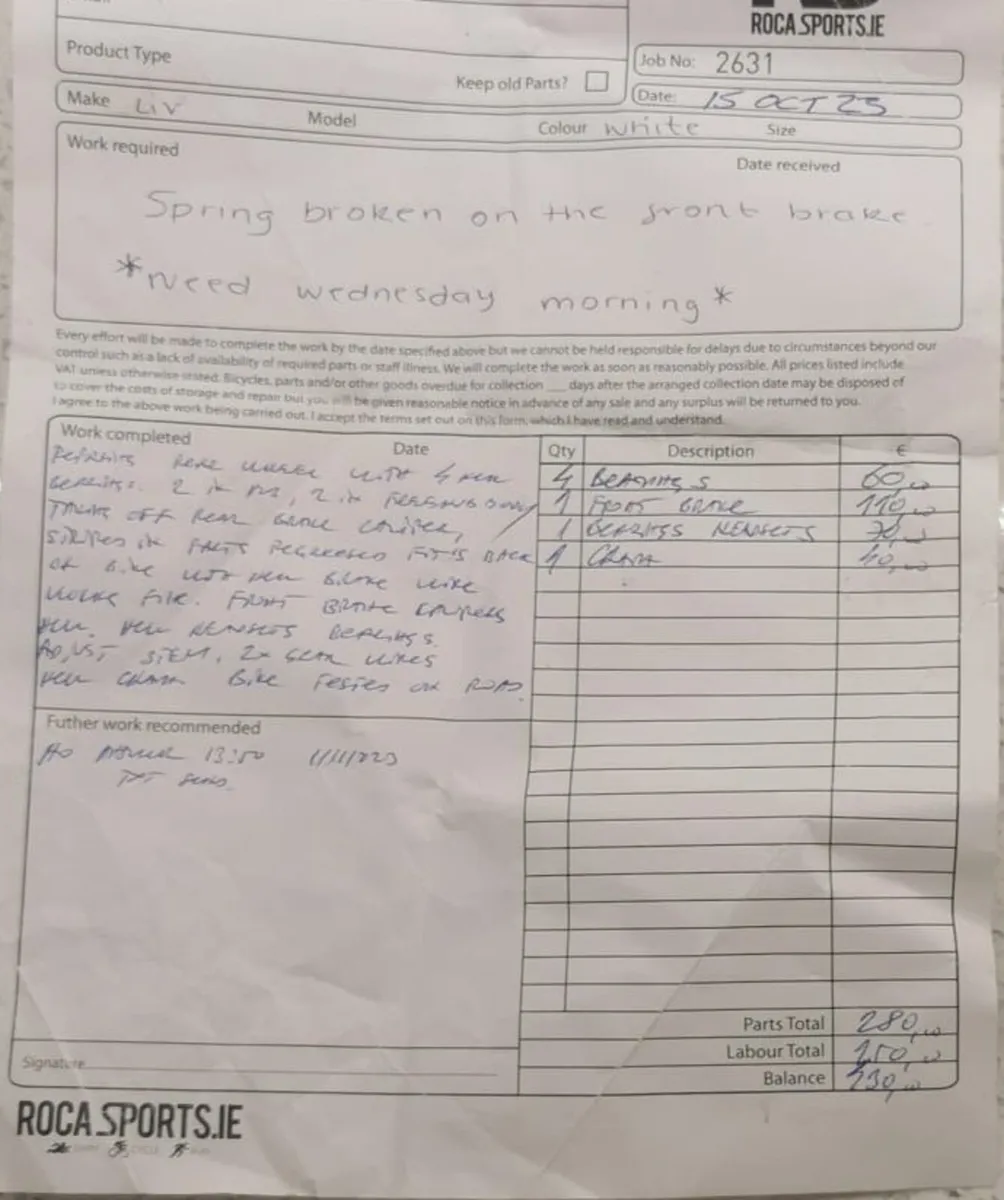 ROCA SPORTS.IE
Product Type
Keep old Parts?
Job No: 2631
Date: 15 OCT 25
Make Liv
Model
Colour white
Size
Work required
Date received
Spring broken on the front brake
*Need wednesday morning*
Every effort will be made to complete the work by the date specified above but we cannot be held responsible for delays due to circumstances beyond our
control such as a lack of availability of required parts or staff illness. We will complete the work as soon as reasonably possible. All prices listed include
VAT unless otherwise stated. Bicycles, parts and/or other goods overdue for collection ___ days after the arranged collection date may be disposed of
to cover the costs of storage and repair but you will be given reasonable notice in advance of any sale and any surplus will be returned to you.
I agree to the above work being carried out. I accept the terms set out on this form, which I have read and understand.
Work completed
Date
Qty Description €
4 BEARINGS 60,00
1 FRONT BRAKE 110,00
1 BEARINGS HEADSETS 70,00
1 CHAIN 40,00
REAR WHEEL WITH 4 NEW
BEARINGS. 2 in 2 in
TAKING OFF REAR BRAKE CALIPER,
PARTS BACK
ON BIKE NEW BRAKE WIRE
FRONT BRAKE CALIPERS
NEW. NEW HEADSETS BEARINGS.
ADJUST STEM, 2x GEAR WIRES
NEW CHAIN BIKE TESTED ON ROAD.
Futher work recommended
13:50
TXT
Parts Total 280,00
Labour Total 150,00
Balance
Signature
ROCA SPORTS.IE